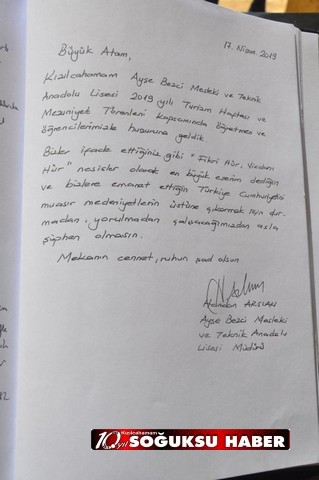 17. Nisan. 2019
Büyük Atam,
Kızılcahamam Ayşe Bezci Mesleki ve Teknik
Anadolu Lisesi 2019 yılı Turizm Haftası ve
Mezuniyet Törenleri kapsamında öğretmen ve
öğrencilerimizle huzuruna geldik.
Bizler ifade ettiğiniz gibi "Fikri Hür, Vicdanı
Hür" nesiller olarak en büyük eserim dediğin
ve bizlere emanet ettiğin Türkiye Cumhuriyetini
muasır medeniyetlerin üstüne çıkarmak için dur-
madan, yorulmadan çalışacağımızdan asla
şüphen olmasın.
Mekanın cennet, ruhun şad olsun
ARSLAN
Ayşe Bezci Mesleki
ve Teknik Anadolu
Lisesi Müdürü
Kızılcahamam
10.yıl SOĞUKSU HABER